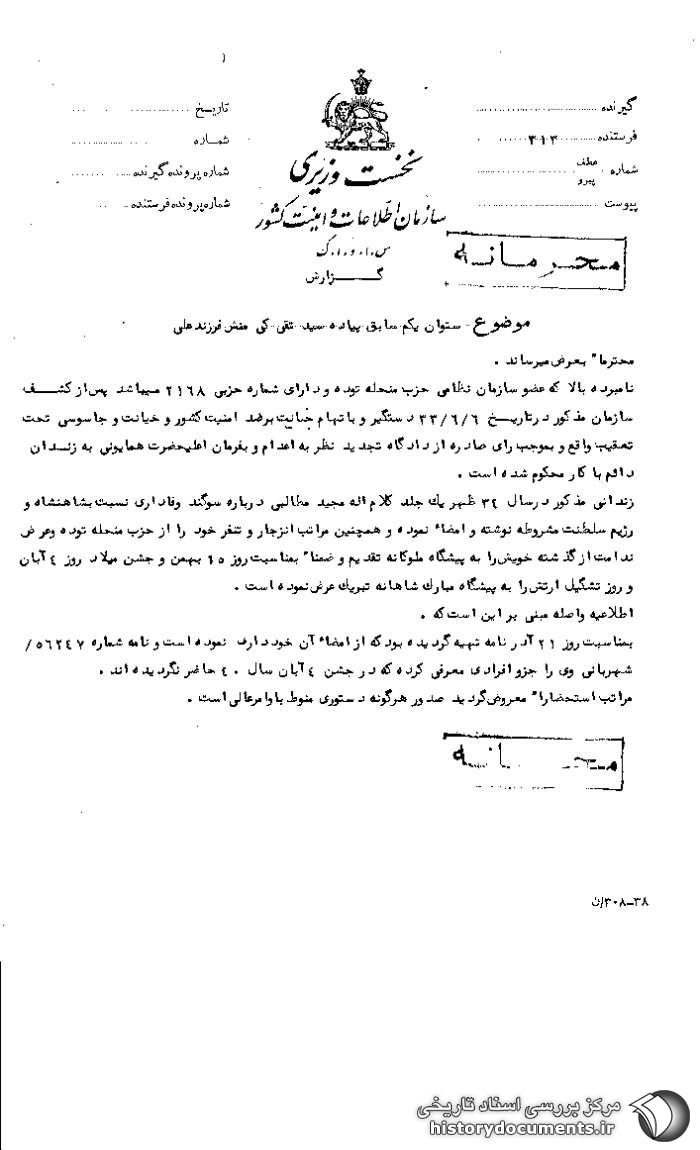 گیرنده
فرستنده ۳۱۳
شماره
عطف
پیرو
پیوست
نخست وزیری
سازمان اطلاعات و امنیت کشور
س.ا.و.ا.ک
گــــزارش
تاریـخ
شمـاره
شماره پرونده گیرنده
شماره پرونده فرستنده
محرمانه
موضوع - ستوان یکم سابق پیاده سید تقی کی منش فرزند علی
محترما" بعرض میرساند .
نامبرده بالا که عضو سازمان نظامی حزب منحله توده و دارای شماره حزبی ۲۱۶۸ میباشد پس از کشـف
سازمان مذکور در تاریـخ ۳۳/۶/۶ دستگیر و باتهام خیانت برضد امنیت کشور و خیانت و جاسوسی تحت
تعقیب واقع و بموجب رای صادره از دادگاه تجدید نظر به اعدام و بفرمان اعلیحضرت همایونی به زنـدان
دائم با کار محکوم شده است .
زندانی مذکور در سال ۳۴ ظهر یک جلد کلام اله مجید مطالبی درباره سوگند وفاداری نسبت بشاهنشاه و
رژیم سلطنت مشروطه نوشته و امضاء نموده و همچنین مراتب انزجار و تنفر خود را از حزب منحله توده و عرض
ندامت از گذشته خویش را به پیشگاه ملوکانه تقدیم و ضمنا" بمناسبت روز ۱۵ بهمن و جشن میلاد روز ۴ آبان
و روز تشکیل ارتش را به پیشگاه مبارک شاهانه تبریک عرض نموده است .
اطلاعیه واصله مبنی بر این است که .
بمناسبت روز ۲۱ آذر نامه تهیه گردیده بود که از امضاء آن خودداری نموده است و نامه شماره ۵۶۲۴۷/
شهربانی وی را جزو افرادی معرفی کرده که در جشن ۴ آبان سال ۴۰ حاضر نگردیده اند .
مراتب استحضارا" معروض گردید صدور هرگونه دستوری منوط باوامر عالی است .
محرمانه
۳۰۸-۳۸/ن
مرکز بررسی اسناد تاریخی
historydocuments.ir